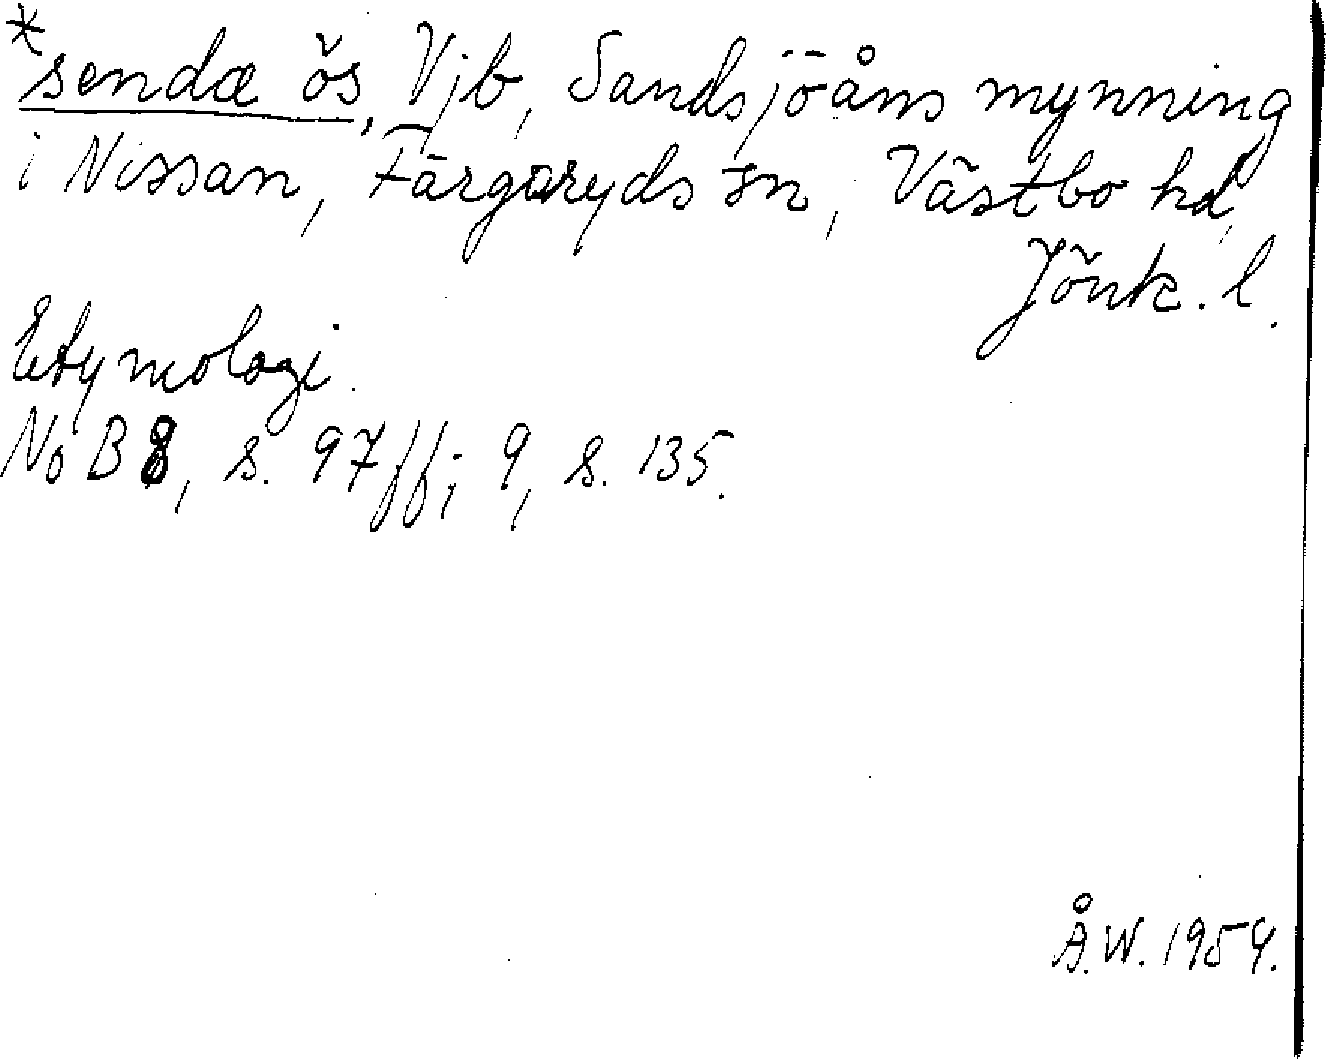 *sendæ ōs, Vjb, Sandsjöåns mynning
i Nissan, Färgaryds sn, Västbo hd,
Jönk. l.
Etymologi.
NoB 8, s. 97 ff; 9, s. 135.
Å.W. 1954.